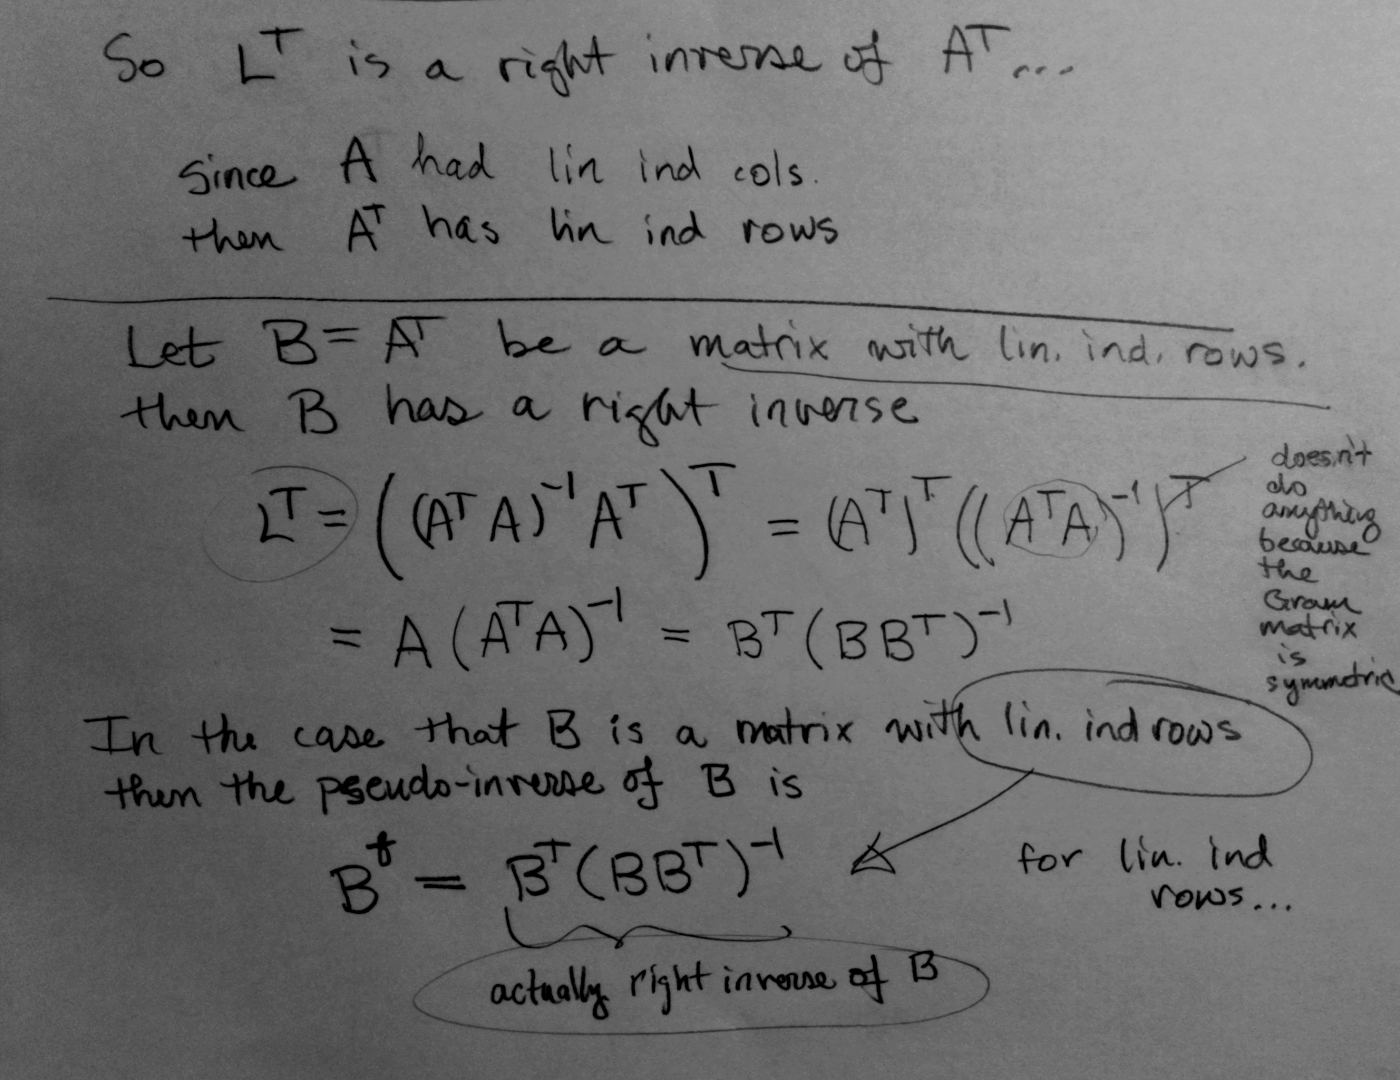 So L^T is a right inverse of A^T...
since A had lin ind cols.
then A^T has lin ind rows
Let B = A^T be a matrix with lin. ind. rows.
then B has a right inverse
L^T = ((A^T A)^-1 A^T)^T = (A^T)^T ((A^T A)^-1)^T
doesn't
do
anything
because
the
Gram
matrix
is
symmetric
= A (A^T A)^-1 = B^T (B B^T)^-1
In the case that B is a matrix with lin. ind rows
then the pseudo-inverse of B is
B^† = B^T (B B^T)^-1
for lin. ind
rows...
actually right inverse of B